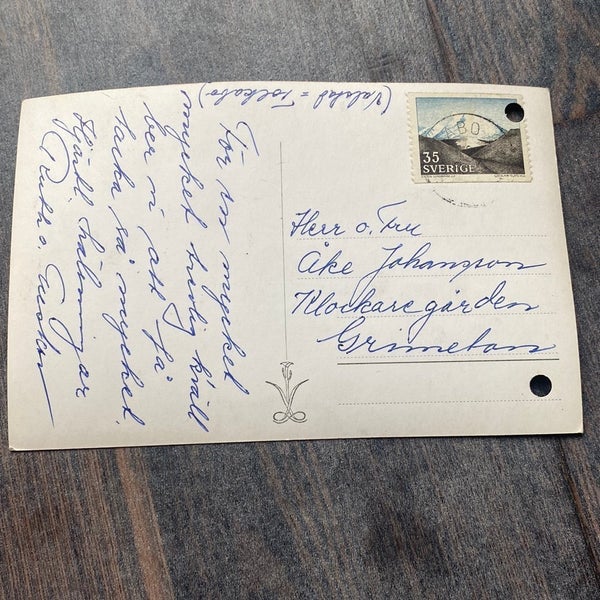 (Valstad = Folkabo)
För en mycket
mycket trevlig kväll
ber vi att få
tacka så mycket.
Hjärtl. hälsningar
Ruth o.
35
SVERIGE
BO
Herr o. Fru
Åke Johansson
Klockaregården
Grimeton